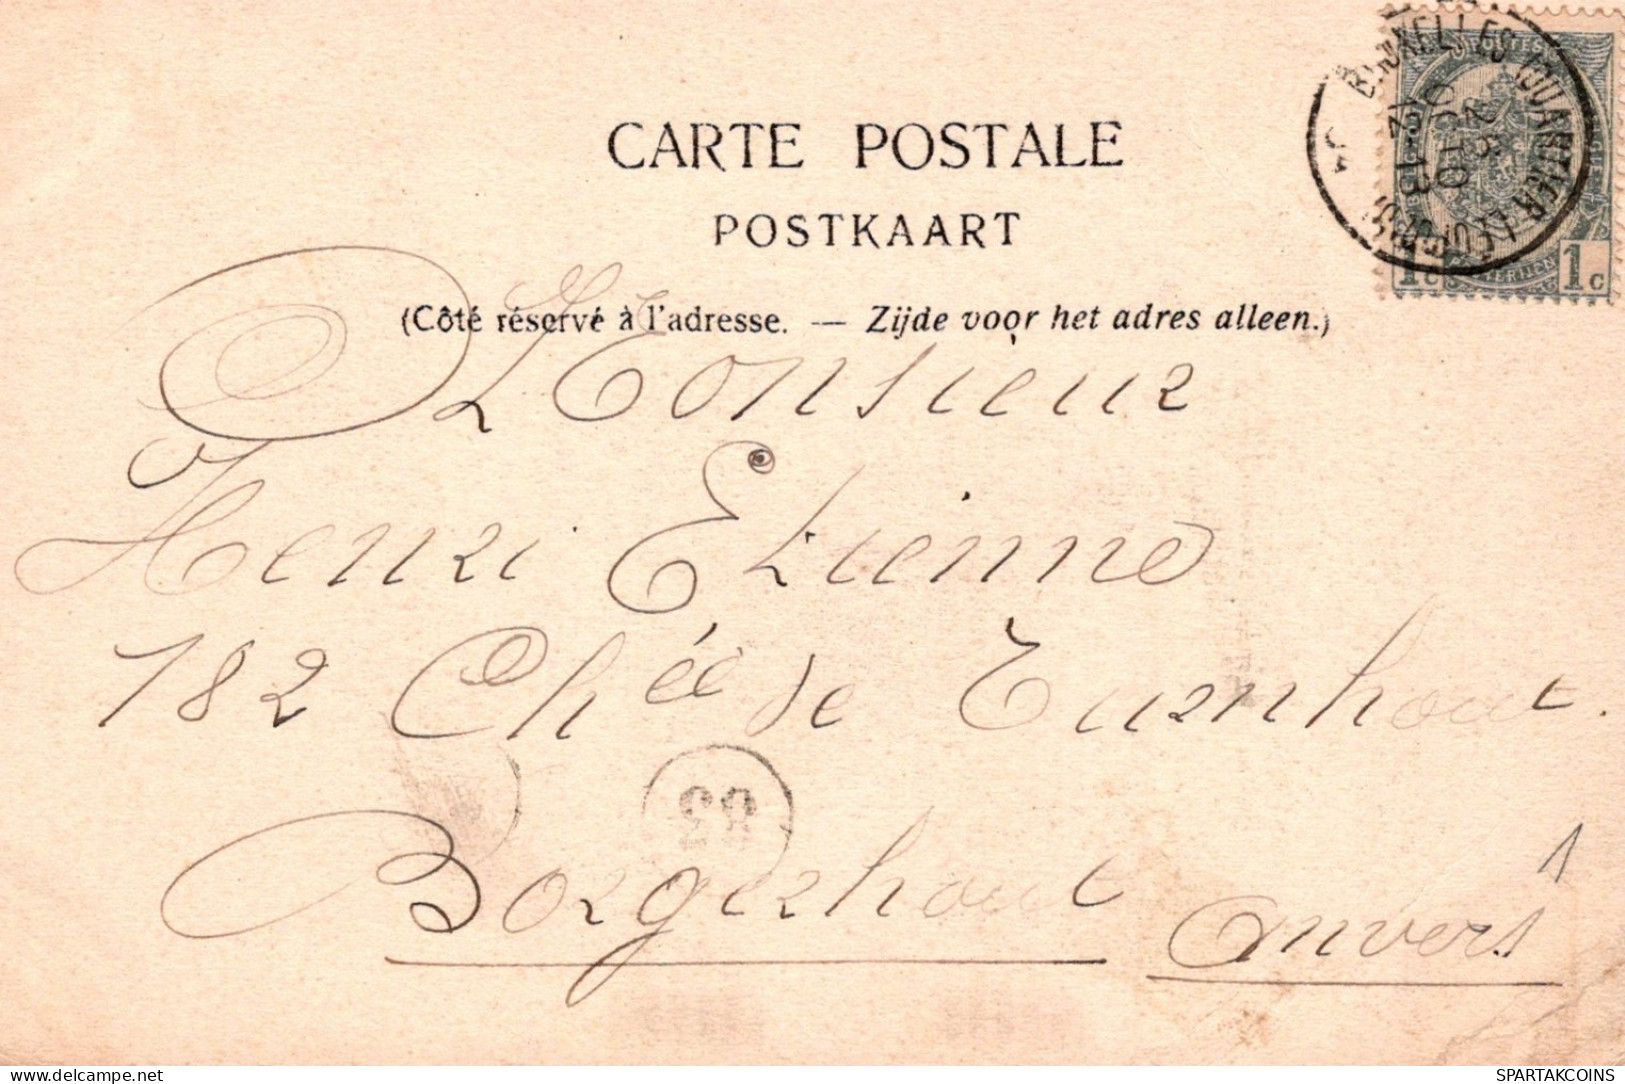 CARTE POSTALE
POSTKAART
(Côté réservé à l'adresse. — Zijde voor het adres alleen.)
POSTES
1c 1c
Monsieur
Henri Etienne
182 Chée de Turnhout.
Borgerhout Anvers
delcampe.net
SPARTAKCOINS